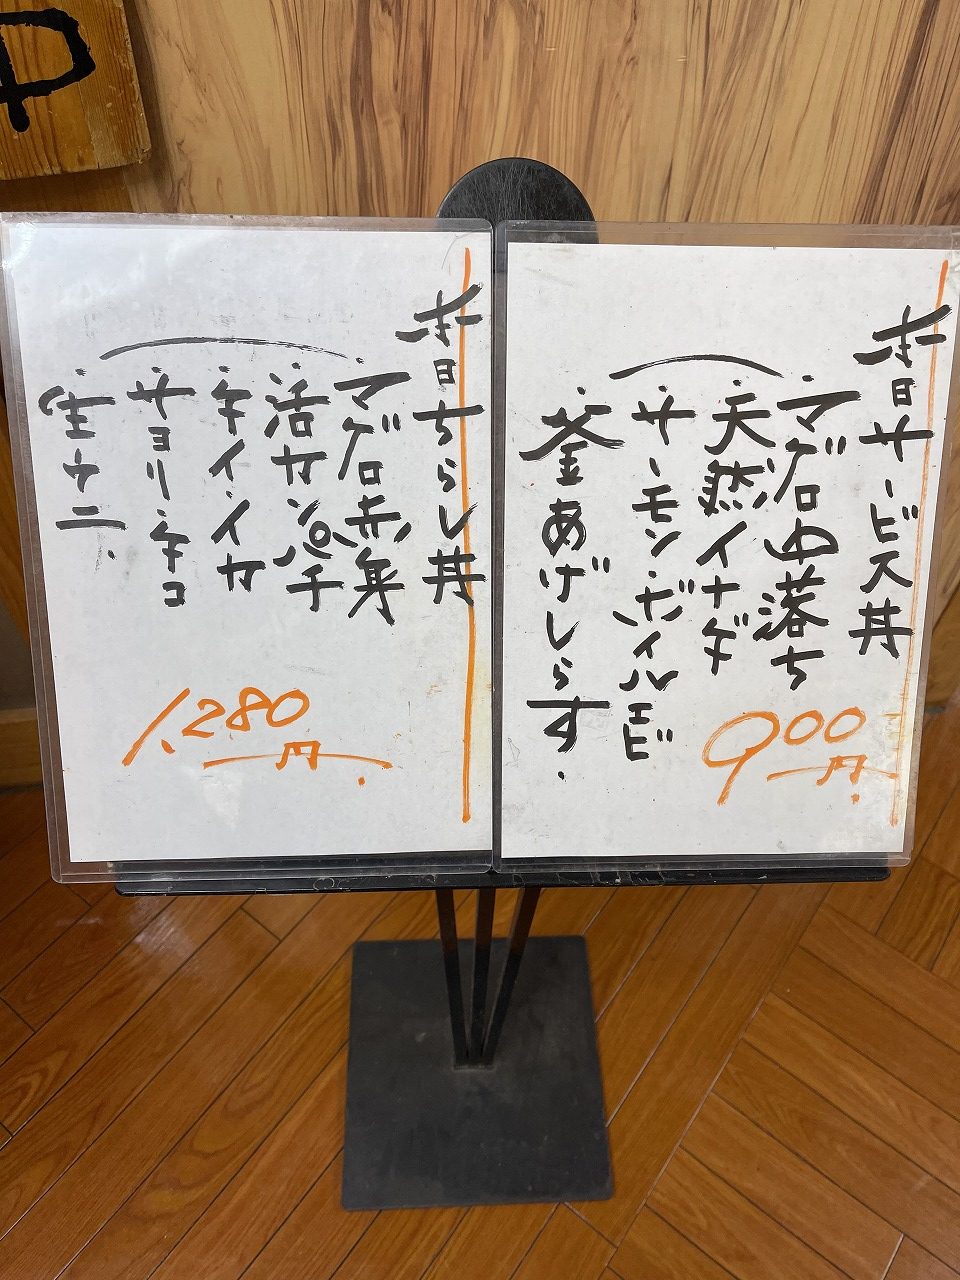 中
本日サービス丼
・マグロ中落ち
・天然イナダ
・サーモン・ボイルエビ
・釜あげしらす.
900円.
本日ちらし丼
・マグロ赤身
・活カンパチ
・サヨリ・
・生ウニ.
1.280円.